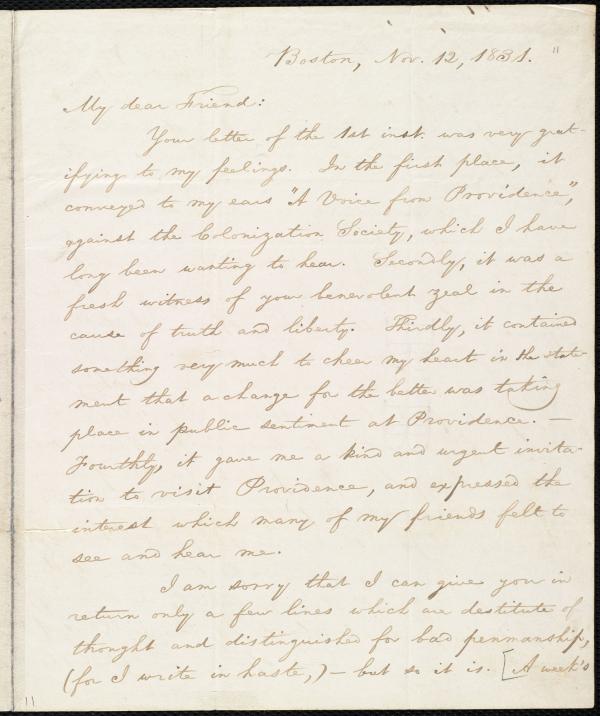 Boston, Nov. 12, 1831. "
My dear Friend:
Your letter of the 1st inst. was very grat-
ifying to my feelings. In the first place, it
conveyed to my ears "A Voice from Providence,"
against the Colonization Society, which I have
long been wanting to hear. Secondly, it was a
fresh witness of your benevolent zeal in the
cause of truth and liberty. Thirdly, it contained
something very much to cheer my heart in the state-
ment that a change for the better was taking
place in public sentiment at Providence. —
Fourthly, it gave me a kind and urgent invita-
tion to visit Providence, and expressed the
interest which many of my friends felt to
see and hear me.
I am sorry that I can give you in
return only a few lines which are destitute of
thought and distinguished for bad penmanship,
(for I write in haste,) — but so it is. [A week's
11